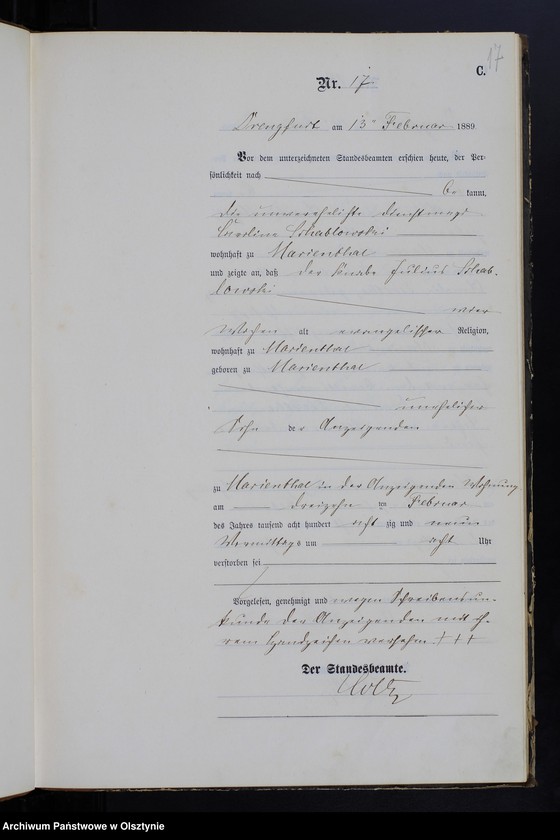 17
C.
Nr. 17
Drengfurt am 13ten Februar 1889
Vor dem unterzeichneten Standesbeamten erschien heute, der Per-
sönlichkeit nach
be kannt,
die unverehelichte Dienstmagd
Karoline Schablowski
wohnhaft zu Marienthal
und zeigte an, daß der Knabe Julius Schab-
lowski
vier
Wochen alt evangelischer Religion,
wohnhaft zu Marienthal
geboren zu Marienthal
unehelicher
Sohn der Anzeigenden
zu Marienthal in der Anzeigenden Wohnung
am dreizehn ten Februar
des Jahres tausend acht hundert acht zig und neun
Vormittags um acht Uhr
verstorben sei
Vorgelesen, genehmigt und wegen Schreibensun-
kunde der Anzeigenden mit ih-
rem Handzeichen versehen + + +
Der Standesbeamte.
Holtz
Archiwum Państwowe w Olsztynie